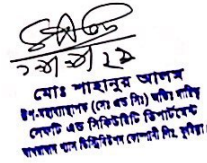 মোঃ শাহানুর আলম
উপ-মহাব্যবস্থাপক (সেঃ এন্ড সিঃ) অতিঃ দায়িত্ব
সেফটি এন্ড সিকিউরিটি ডিপার্টমেন্ট
গ্যাস ডিস্ট্রিবিউশন কোম্পানী লিঃ, কুমিল্লা।